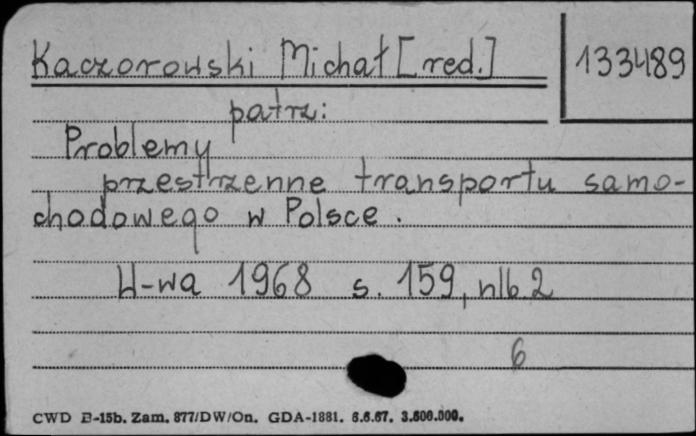 Kaczorowski Michał [red.]
133489
patrz:
Problemy
przestrzenne transportu samo-
chodowego w Polsce.
W-wa 1968 s. 159, nlb. 2
6
CWD B-15b. Zam. 877/DW/On. GDA-1881. 6.6.67. 3.600.000.